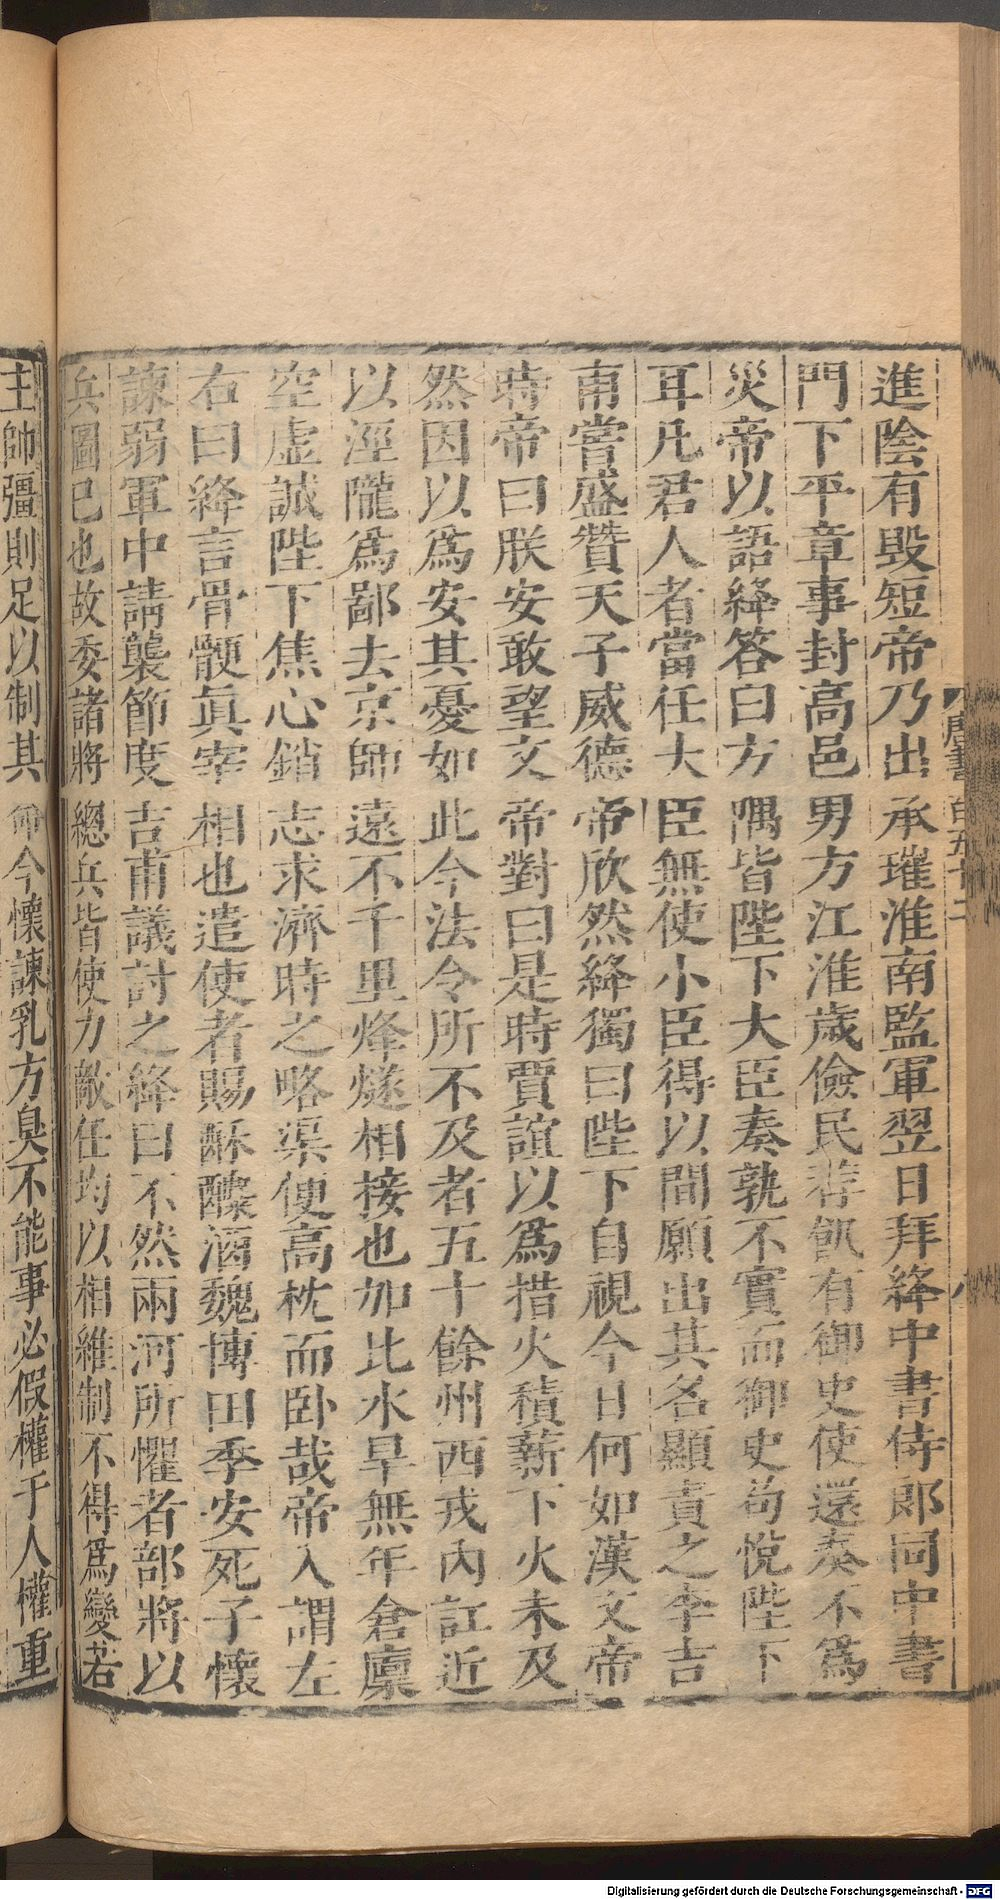 進陰有毁短帝乃出承璀淮南監軍翌日拜絳中書侍郎同中書
門下平章事封高邑男方江淮歲儉民荐飢有御史使還奏不爲
災帝以語絳答曰方隅皆陛下大臣奏孰不實而御史苟悅陛下
耳凡君人者當任大臣無使小臣得以間願出其名顯責之李吉
甫嘗盛贊天子威德帝欣然絳獨曰陛下自視今日何如漢文帝
時帝曰朕安敢望文帝對曰是時賈誼以爲措火積薪下火未及
然因以爲安其憂如此今法令所不及者五十餘州西戎內訌近
以涇隴爲鄙去京師遠不千里烽燧相接也加比水旱無年倉廩
空虛誠陛下焦心銷志求濟時之略渠便高枕而卧哉帝入謂左
右曰絳言骨骾眞宰相也遣使者賜酴醿酒魏博田季安死子懷
諫弱軍中請襲節度吉甫議討之絳曰不然兩河所懼者部將以
兵圖已也故委諸將總兵皆使力敵任均以相維制不得爲變若
主帥彊則足以制其命今懷諫乳方臭不能事必假權于人權重
唐書百五十二
八
Digitalisierung gefördert durch die Deutsche Forschungsgemeinschaft - DFG